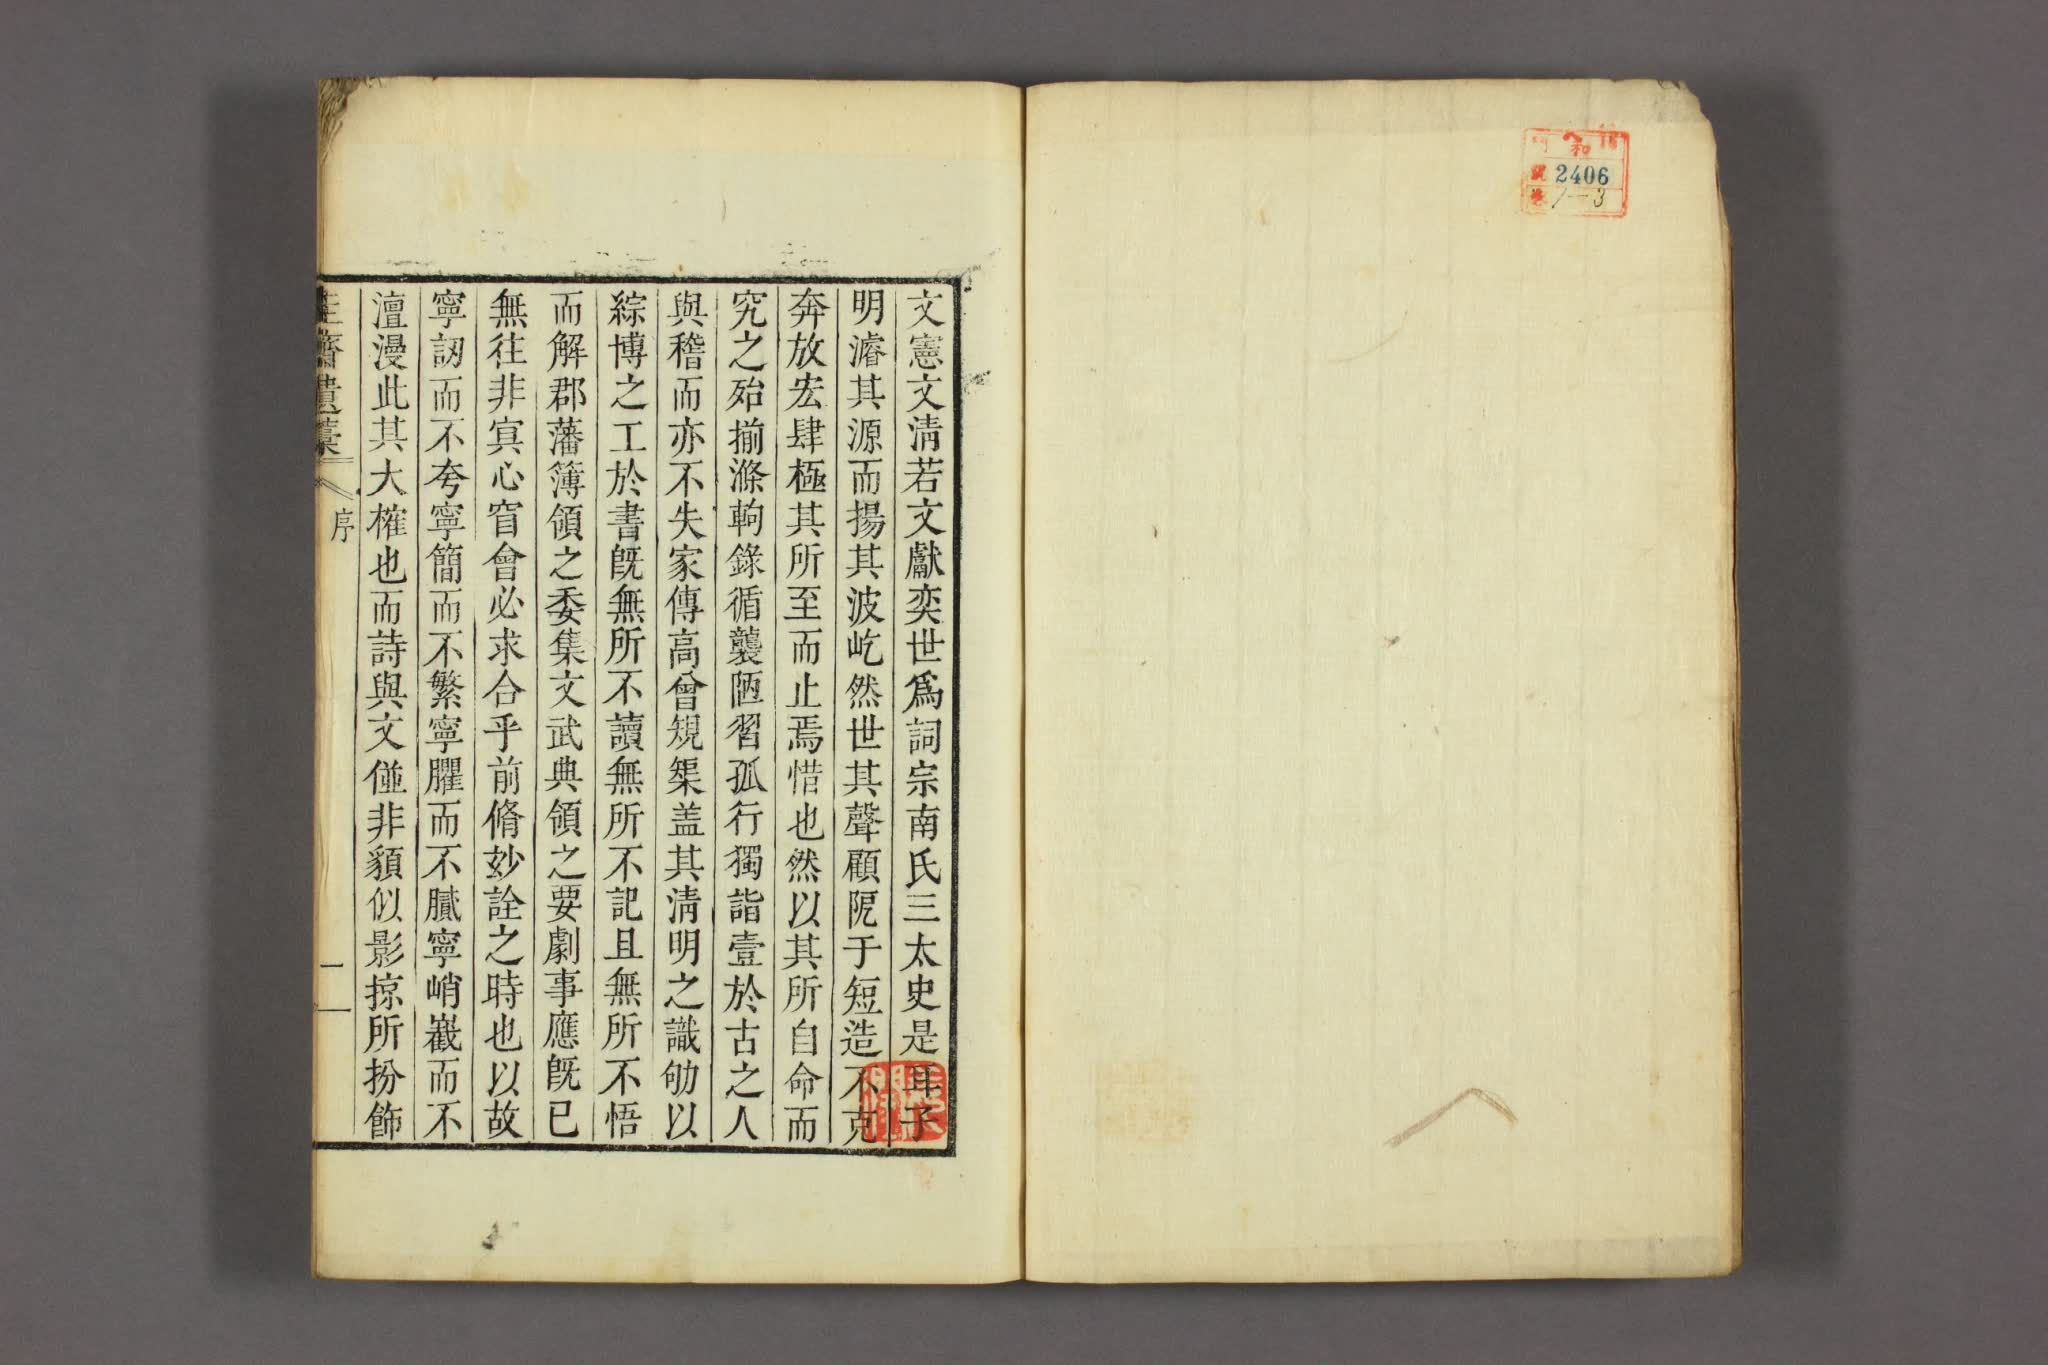 和
號 2406
卷 1—3
文憲文淸若文獻奕世爲詞宗南氏三太史是耳子
明濬其源而揚其波屹然世其聲顧阨于短造不克
奔放宏肆極其所至而止焉惜也然以其所自命而
究之殆揃滌軥錄循襲陋習孤行獨詣壹於古之人
與稽而亦不失家傳高曾規榘盖其淸明之識劬以
綜博之工於書旣無所不讀無所不記且無所不悟
而解郡藩簿領之委集文武典領之要劇事應旣已
無徃非寘心窅會必求合乎前脩玅詮之時也以故
寧訒而不夸寧簡而不繁寧臞而不膩寧峭嶻而不
澶漫此其大榷也而詩與文倂非䫉似影掠所扮飾
遺藁
序
二